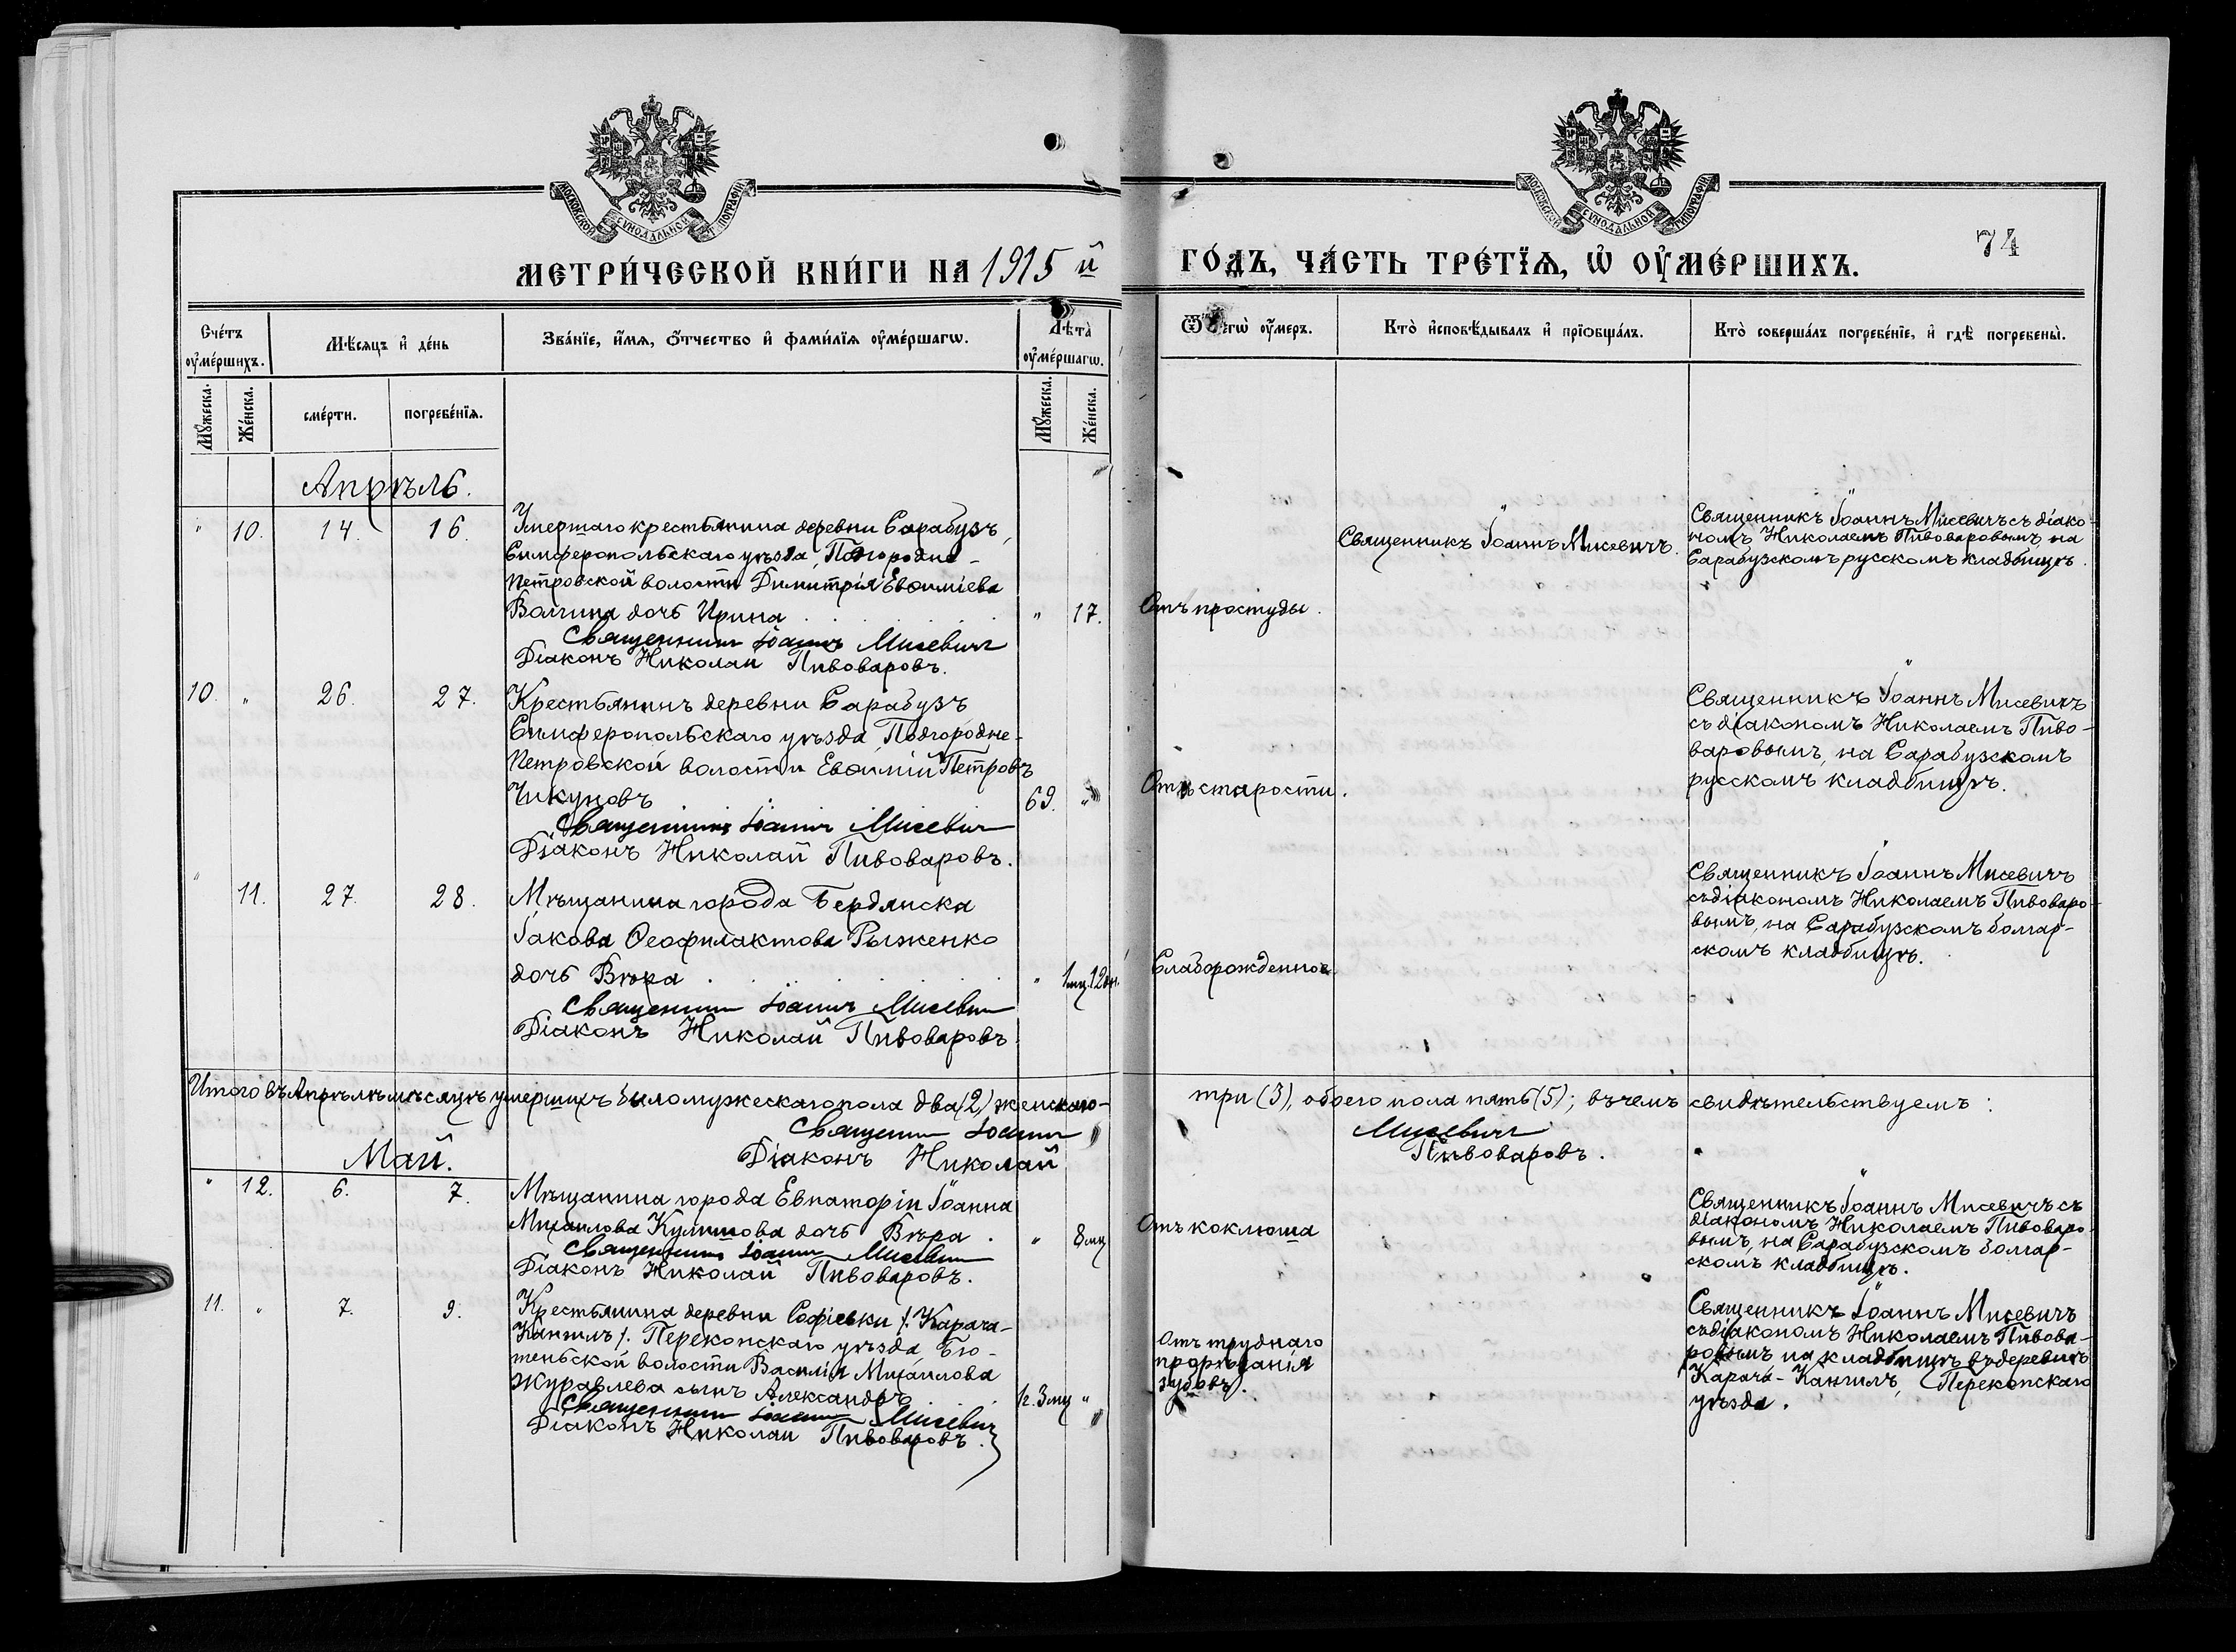 МОСКОВСКОЙ СѴНОДАЛЬНОЙ ТИПОГРАФІИ
МЕТРИ́ЧЕСКОЙ КНИ́ГИ НА 1915 й
Сче́тъ ᲂу҆ме́ршихъ.
Мѣ́сяцъ и҆ де́нь
Зва́нїе, и҆́мѧ, ѻ҆́тчество и҆ фами́лїѧ ᲂу҆ме́ршагѡ.
Лѣ̀та ᲂу҆ме́ршагѡ.
Мꙋ́жеска.
Же́нска.
сме́рти.
погребе́нїѧ.
Мꙋ́жеска.
Же́нска.
Апрѣль.
" 10. 14. 16.
Умершаго крестьянина деревни Сарабузъ,
Симферопольскаго уѣзда, Подгородне-
Петровской волости Димитрія Евѳиміева
дочь Ирина " 17.
Священникъ Іоаннъ Мисевичъ
Діаконъ Николай Пивоваровъ.
10. " 26. 27.
Крестьянинъ деревни Сарабузъ
Симферопольскаго уѣзда, Подгородне-
Петровской волости Евѳимій Петровъ
Чикуновъ 69. "
Священникъ Іоаннъ Мисевичъ
Діаконъ Николай Пивоваровъ.
" 11. 27. 28.
Мѣщанина города Бердянска
Іакова Ѳеофилактова Рыженко
дочь Вѣра " 1 мц. 12 дн.
Священникъ Іоаннъ Мисевичъ
Діаконъ Николай Пивоваровъ
Итого въ Апрѣлѣ мѣсяцѣ умершихъ было мужескаго пола два (2) женскаго-
Священникъ Іоаннъ
Діаконъ Николай
Май.
" 12. 6. 7.
Мѣщанина города Евпаторіи Іоанна
Михаилова Кулишова дочь Вѣра " 8 мц
Священникъ Іоаннъ Мисевичъ
Діаконъ Николай Пивоваровъ.
11. " 7. 9.
Крестьянина деревни Софіевки /: Карача-
Кангилъ /: Перекопскаго уѣзда, Бю-
тенбской волости Василія Михаилова
Журавлева сынъ Александръ 1 г. 3 мц "
Священникъ Іоаннъ Мисевичъ
Діаконъ Николай Пивоваровъ.
МОСКОВСКОЙ СѴНОДАЛЬНОЙ ТИПОГРАФІИ
74
ГО́ДЪ, ЧА́СТЬ ТРЕ́ТЇѦ, Ѡ҆ ᲂУ҆МЕ́РШИХЪ.
Ѿ чегѡ̀ ᲂу҆́меръ.
Кто̀ и҆сповѣ́дывалъ и҆ прїѡбща́лъ.
Кто̀ соверша́лъ погребе́нїе, и҆ гдѣ̀ погребены̀.
Отъ простуды.
Священникъ Іоаннъ Мисевичъ.
Священникъ Іоаннъ Мисевичъ съ діако-
номъ Николаемъ Пивоваровымъ, на
Сарабузскомъ русскомъ кладбищѣ.
Отъ старости.
Священникъ Іоаннъ Мисевичъ
съ діакономъ Николаемъ Пиво-
варовымъ, на Сарабузскомъ
русскомъ кладбищѣ.
Слаборожденное
Священникъ Іоаннъ Мисевичъ
съ діакономъ Николаемъ Пивоваро-
вымъ, на Сарабузскомъ болгар-
скомъ кладбищѣ.
три (3), обоего пола пять (5); въ чемъ свидѣтельствуемъ:
Мисевичъ
Пивоваровъ.
Отъ коклюша
Священникъ Іоаннъ Мисевичъ съ
діакономъ Николаемъ Пивоваро-
вымъ, на Сарабузскомъ болгар-
скомъ кладбищѣ.
Отъ труднаго
прорѣзанія
зубовъ.
Священникъ Іоаннъ Мисевичъ
съ діакономъ Николаемъ Пивова-
ровымъ на кладбищѣ въ деревнѣ
Карача-Кангилъ, Перекопскаго
уѣзда.